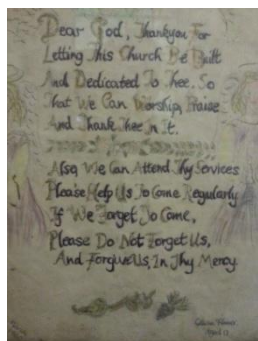 Dear God, Thankyou For
Letting This Church Be Built
And Dedicated To Thee. So
That We Can Worship, Praise
And Thank Thee In It.
Also, We Can Attend Thy Services
Please Help Us To Come Regularly
If We Forget To Come,
Please Do Not Forget Us,
And Forgive Us, In Thy Mercy